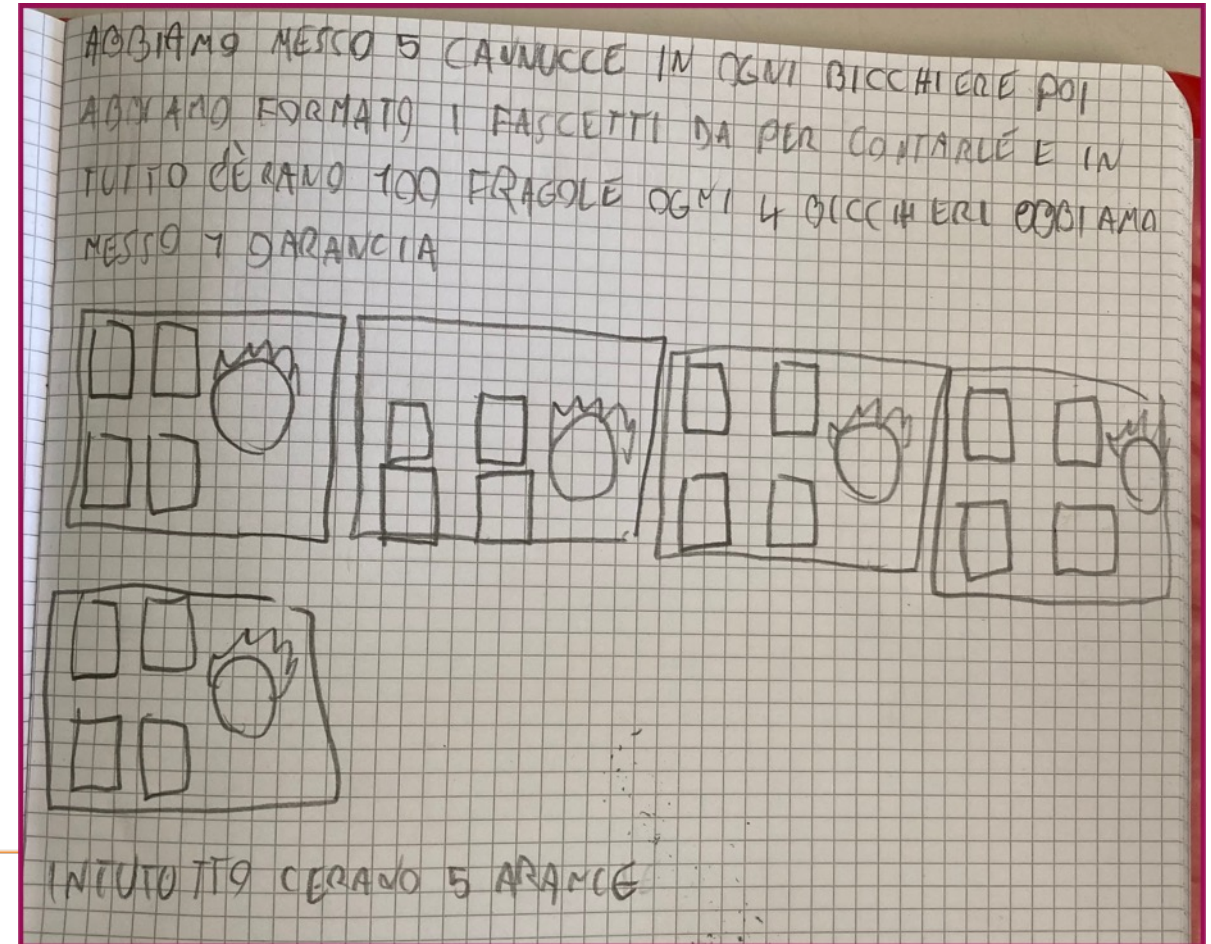 ABBIAMO MESCO 5 CANNUCCE IN OGNI BICCHIERE POI
ABBIAMO FORMATO I FASCETTI DA PER CONTARLE E IN
TUTTO CÈRANO 100 FRAGOLE OGNI 4 BICCHIERI ABBIAMO
MESSO 1 OARANCIA
INTUTOTTO CERANO 5 ARANCE